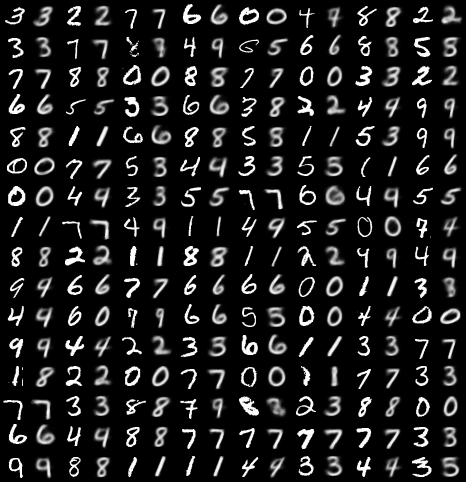 3 3 2 2 7 7 6 6 0 0 4 7 8 8 2 2
3 3 7 7 8 4 9 5 6 6 8 8 5 5
7 7 8 8 0 0 8 8 7 7 0 0 3 3 2 2
6 6 5 5 3 3 6 6 3 8 2 2 4 4 9 9
8 8 1 1 6 6 8 8 5 8 1 1 5 3 9 9
0 0 7 7 5 3 4 4 3 3 5 5 1 1 6 6
0 0 4 4 3 3 5 5 7 7 6 6 4 9 5 5
1 1 7 7 4 9 1 1 4 9 5 5 0 0 7 4
8 8 2 2 1 1 8 8 1 1 2 2 9 9 4 9
9 4 6 6 7 7 6 6 6 6 0 0 1 1 3 8
4 9 6 0 7 9 6 6 5 5 0 0 4 4 0 0
9 9 4 4 2 2 3 3 6 6 1 1 3 3 7 7
1 8 2 2 0 0 7 7 0 0 1 1 7 7 3 3
7 7 3 3 8 8 7 9 8 8 2 3 8 8 0 0
6 6 4 4 8 8 7 7 7 7 7 7 7 7 3 3
9 9 8 8 1 1 1 1 4 4 3 3 4 4 3 5